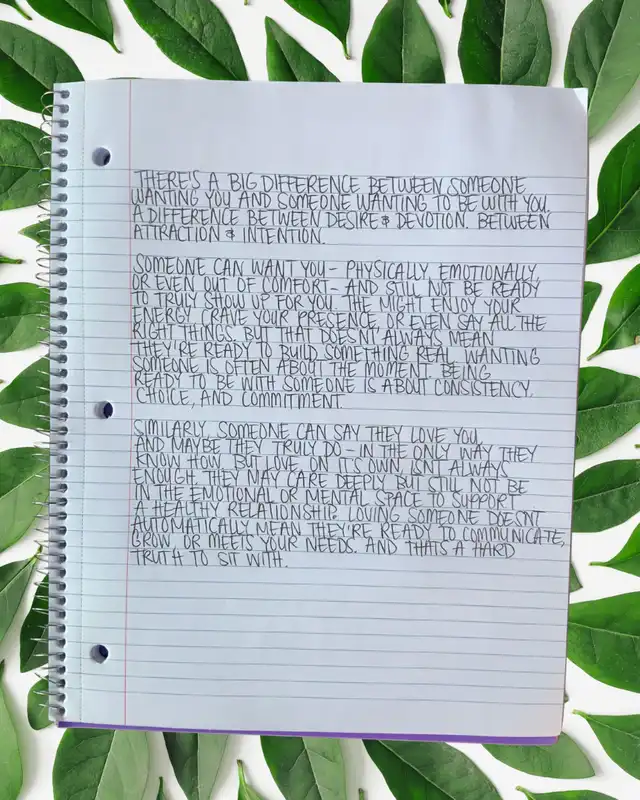 THERE'S A BIG DIFFERENCE BETWEEN SOMEONE
WANTING YOU AND SOMEONE WANTING TO BE WITH YOU
A DIFFERENCE BETWEEN DESIRE & DEVOTION. BETWEEN
ATTRACTION & INTENTION.
SOMEONE CAN WANT YOU - PHYSICALLY, EMOTIONALLY,
OR EVEN OUT OF COMFORT - AND STILL NOT BE READY
TO TRULY SHOW UP FOR YOU. THE MIGHT ENJOY YOUR
ENERGY, CRAVE YOUR PRESENCE, OR EVEN SAY ALL THE
RIGHT THINGS, BUT THAT DOESN'T ALWAYS MEAN
THEY'RE READY TO BUILD SOMETHING REAL. WANTING
SOMEONE IS OFTEN ABOUT THE MOMENT. BEING
READY TO BE WITH SOMEONE IS ABOUT CONSISTENCY,
CHOICE, AND COMMITMENT.
SIMILARLY, SOMEONE CAN SAY THEY LOVE YOU,
AND MAYBE THEY TRULY DO - IN THE ONLY WAY THEY
KNOW HOW. BUT LOVE ON IT'S OWN, ISN'T ALWAYS
ENOUGH. THEY MAY CARE DEEPLY BUT STILL NOT BE
IN THE EMOTIONAL OR MENTAL SPACE TO SUPPORT
A HEALTHY RELATIONSHIP. LOVING SOMEONE DOESN'T
AUTOMATICALLY MEAN THEY'RE READY TO COMMUNICATE,
GROW OR MEETS YOUR NEEDS. AND THATS A HARD
TRUTH TO SIT WITH.